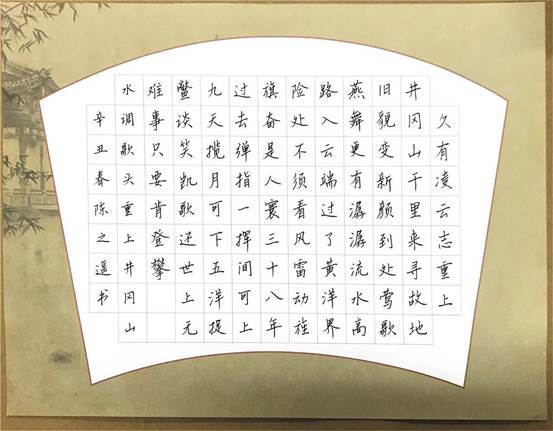 久有凌云志重上
井冈山千里来寻故地
旧貌变新颜到处莺歌
燕舞更有潺潺流水高
路入云端过了黄洋界
险处不须看风雷动旌
旗奋是人寰三十八年
过去弹指一挥间可上
九天揽月可下五洋捉
鳖谈笑凯歌还世上无
难事只要肯登攀
水调歌头重上井冈山
辛丑春陈之遥书